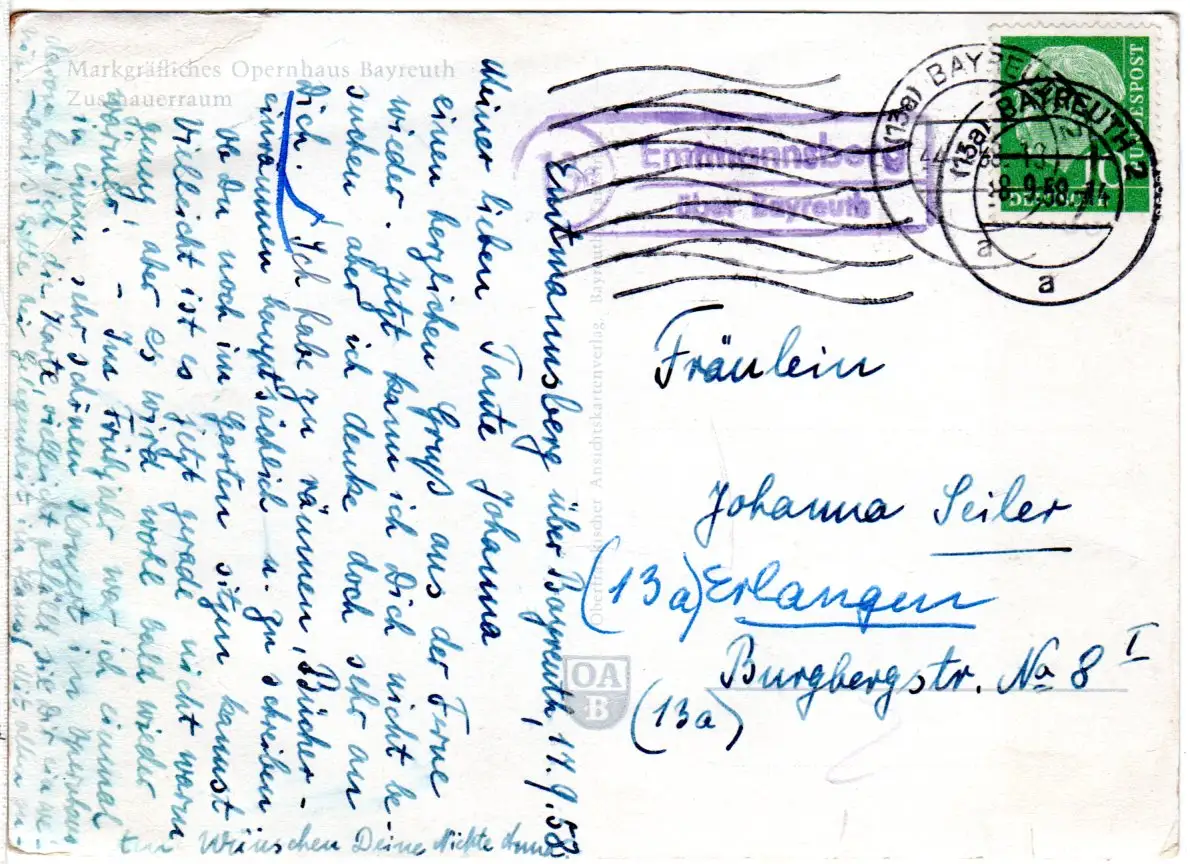 Markgräfliches Opernhaus Bayreuth
Zuschauerraum
Emtmannsberg über Bayreuth, 17.9.58
Meiner lieben Tante Johanna
einen herzlichen Gruß aus der Ferne
wieder. Jetzt kann ich Dich nicht be-
suchen, aber ich denke doch sehr an
Dich. Ich habe zu räumen, Bücher-
einräumen hauptsächlich u. zu schreiben
Ob Du noch im Garten sitzen kannst
Vielleicht ist es jetzt gerade nicht warm
genug, aber es wird wohl bald wieder
wärmer. – Im Frühjahr war ich einmal
in einem sehr schönen Konzert im Opernhaus
davon hab ich die Karte, vielleicht gefällt sie dir
Mit allen
Wünschen Deine Nichte
Emtmannsberg
über Bayreuth
(13a) BAYREUTH 2
8.9.58.-14
a
(13a) BAYREUTH
a
DEUTSCHE BUNDESPOST
10
Oberfränkischer Ansichtskartenverlag, Bayreuth
OA
B
Fräulein
Johanna Seiler
(13a) Erlangen
Burgbergstr. No 8 I
(13a)